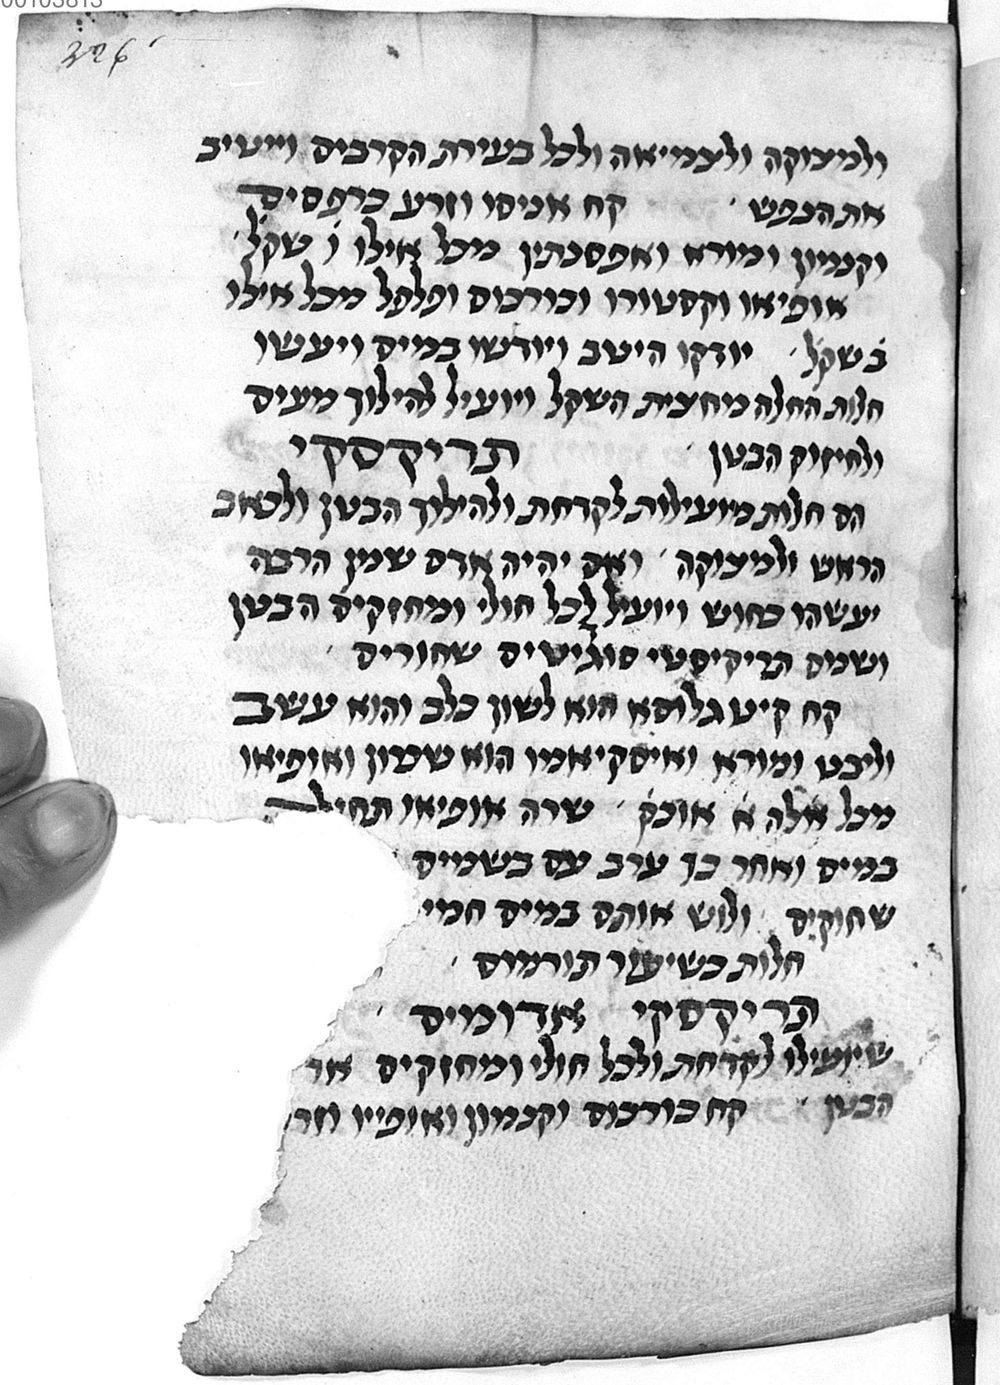 226
ולמצוקה ולצמיאה ולכל בעירת הקרבים וייטיב
את הנפש קח אניסו וזרע כרפסים
וקנמון ומורא ואפסנתין מכל אילו ו שקל
אופיאו וקסטורו וכורכוס ופלפל מכל אילו
ב שקל יודקו היטב ויודשו במים ויעשו
חלות החלה מחצית השקל ויועיל להילוך מעים
ולחיזוק הבטן תריקסקי
הם חלות מועילות לקדחת ולהילוך הבטן ולכאב
הראש ולמצוקה ואם יהיה אדם שמן הרבה
יעשהו כחוש ויועיל לכל חולי ומחזקים הבטן
ושמם תריקיסטי שחורים
קח קיט גלוסא הוא לשון כלב והוא עשב
וליבט ומורא ואיסקיאמו הוא שכרון ואופיאו
מכל אלה א אונק שרה אופיאו תחיל
במים ואחר כך ערב עם בשמים
שחוקים ולוש אותם במים חמי
חלות כשיעור תורמוס
תריקסקי אדומים
שיועילו לקדחת ולכל חולי ומחזקים אד
הבטן קח כורכוס וקנמון ואופייו וזר